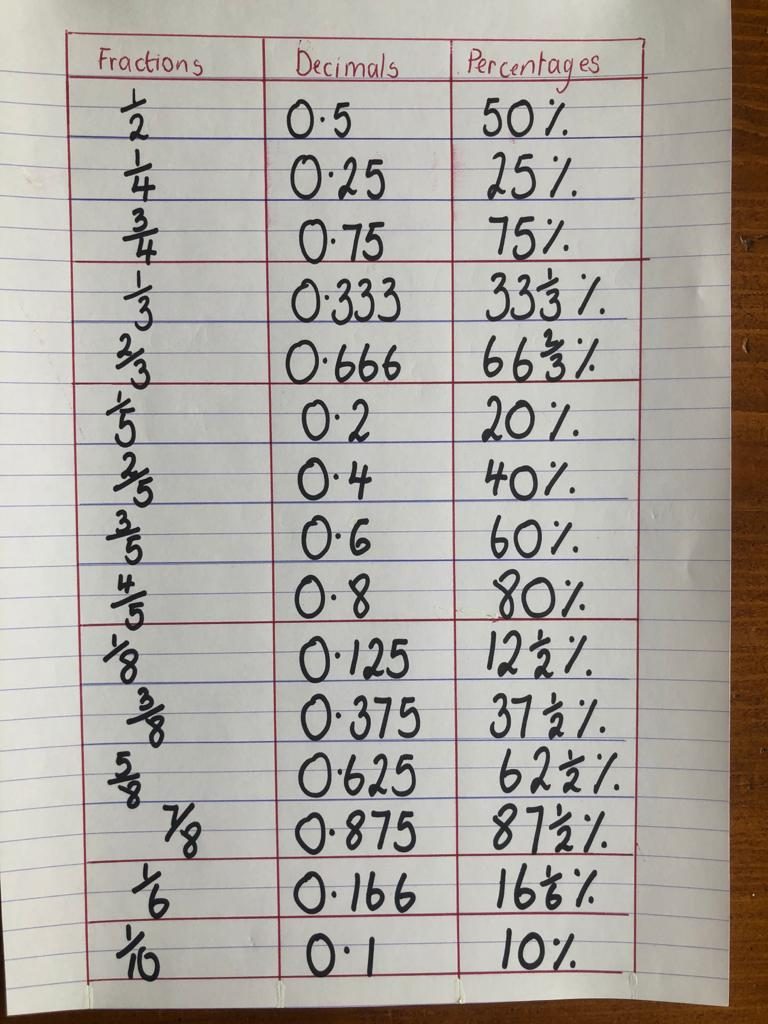 Fractions Decimals Percentages
1/2 0·5 50%
1/4 0·25 25%
3/4 0·75 75%
1/3 0·333 33 1/3 %
2/3 0·666 66 2/3 %
1/5 0·2 20%
2/5 0·4 40%
3/5 0·6 60%
4/5 0·8 80%
1/8 0·125 12 1/2 %
3/8 0·375 37 1/2 %
5/8 0·625 62 1/2 %
7/8 0·875 87 1/2 %
1/6 0·166 16 1/6 %
1/10 0·1 10%